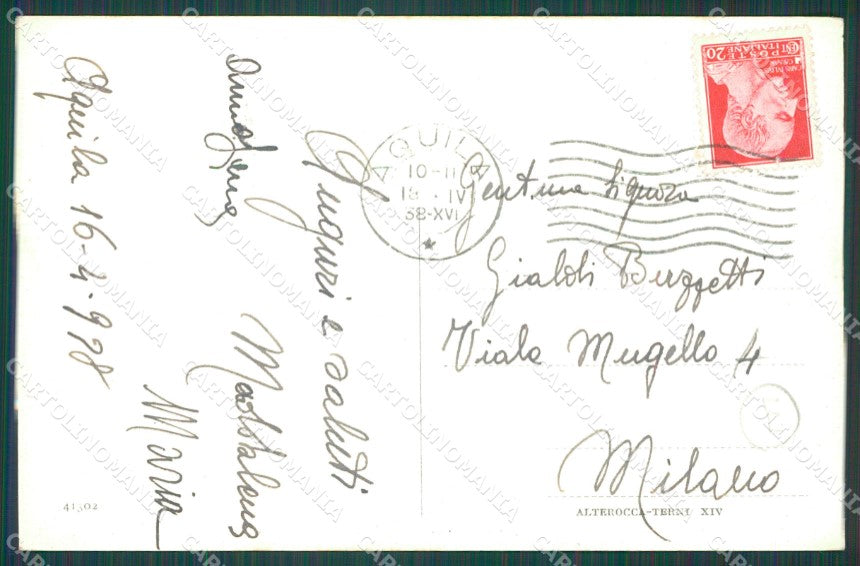 Aquila 16-4-938
Auguri e saluti
Maddalena
Maria
AQUILA
10-11
18 · IV
38-XVI
POSTE
ITALIANE
20
Gent.ma Signora
Gialdi Buzzetti
Viale Mugello 4
Milano
41302
ALTEROCCA-TERNI XIV
CARTOLINOMANIA